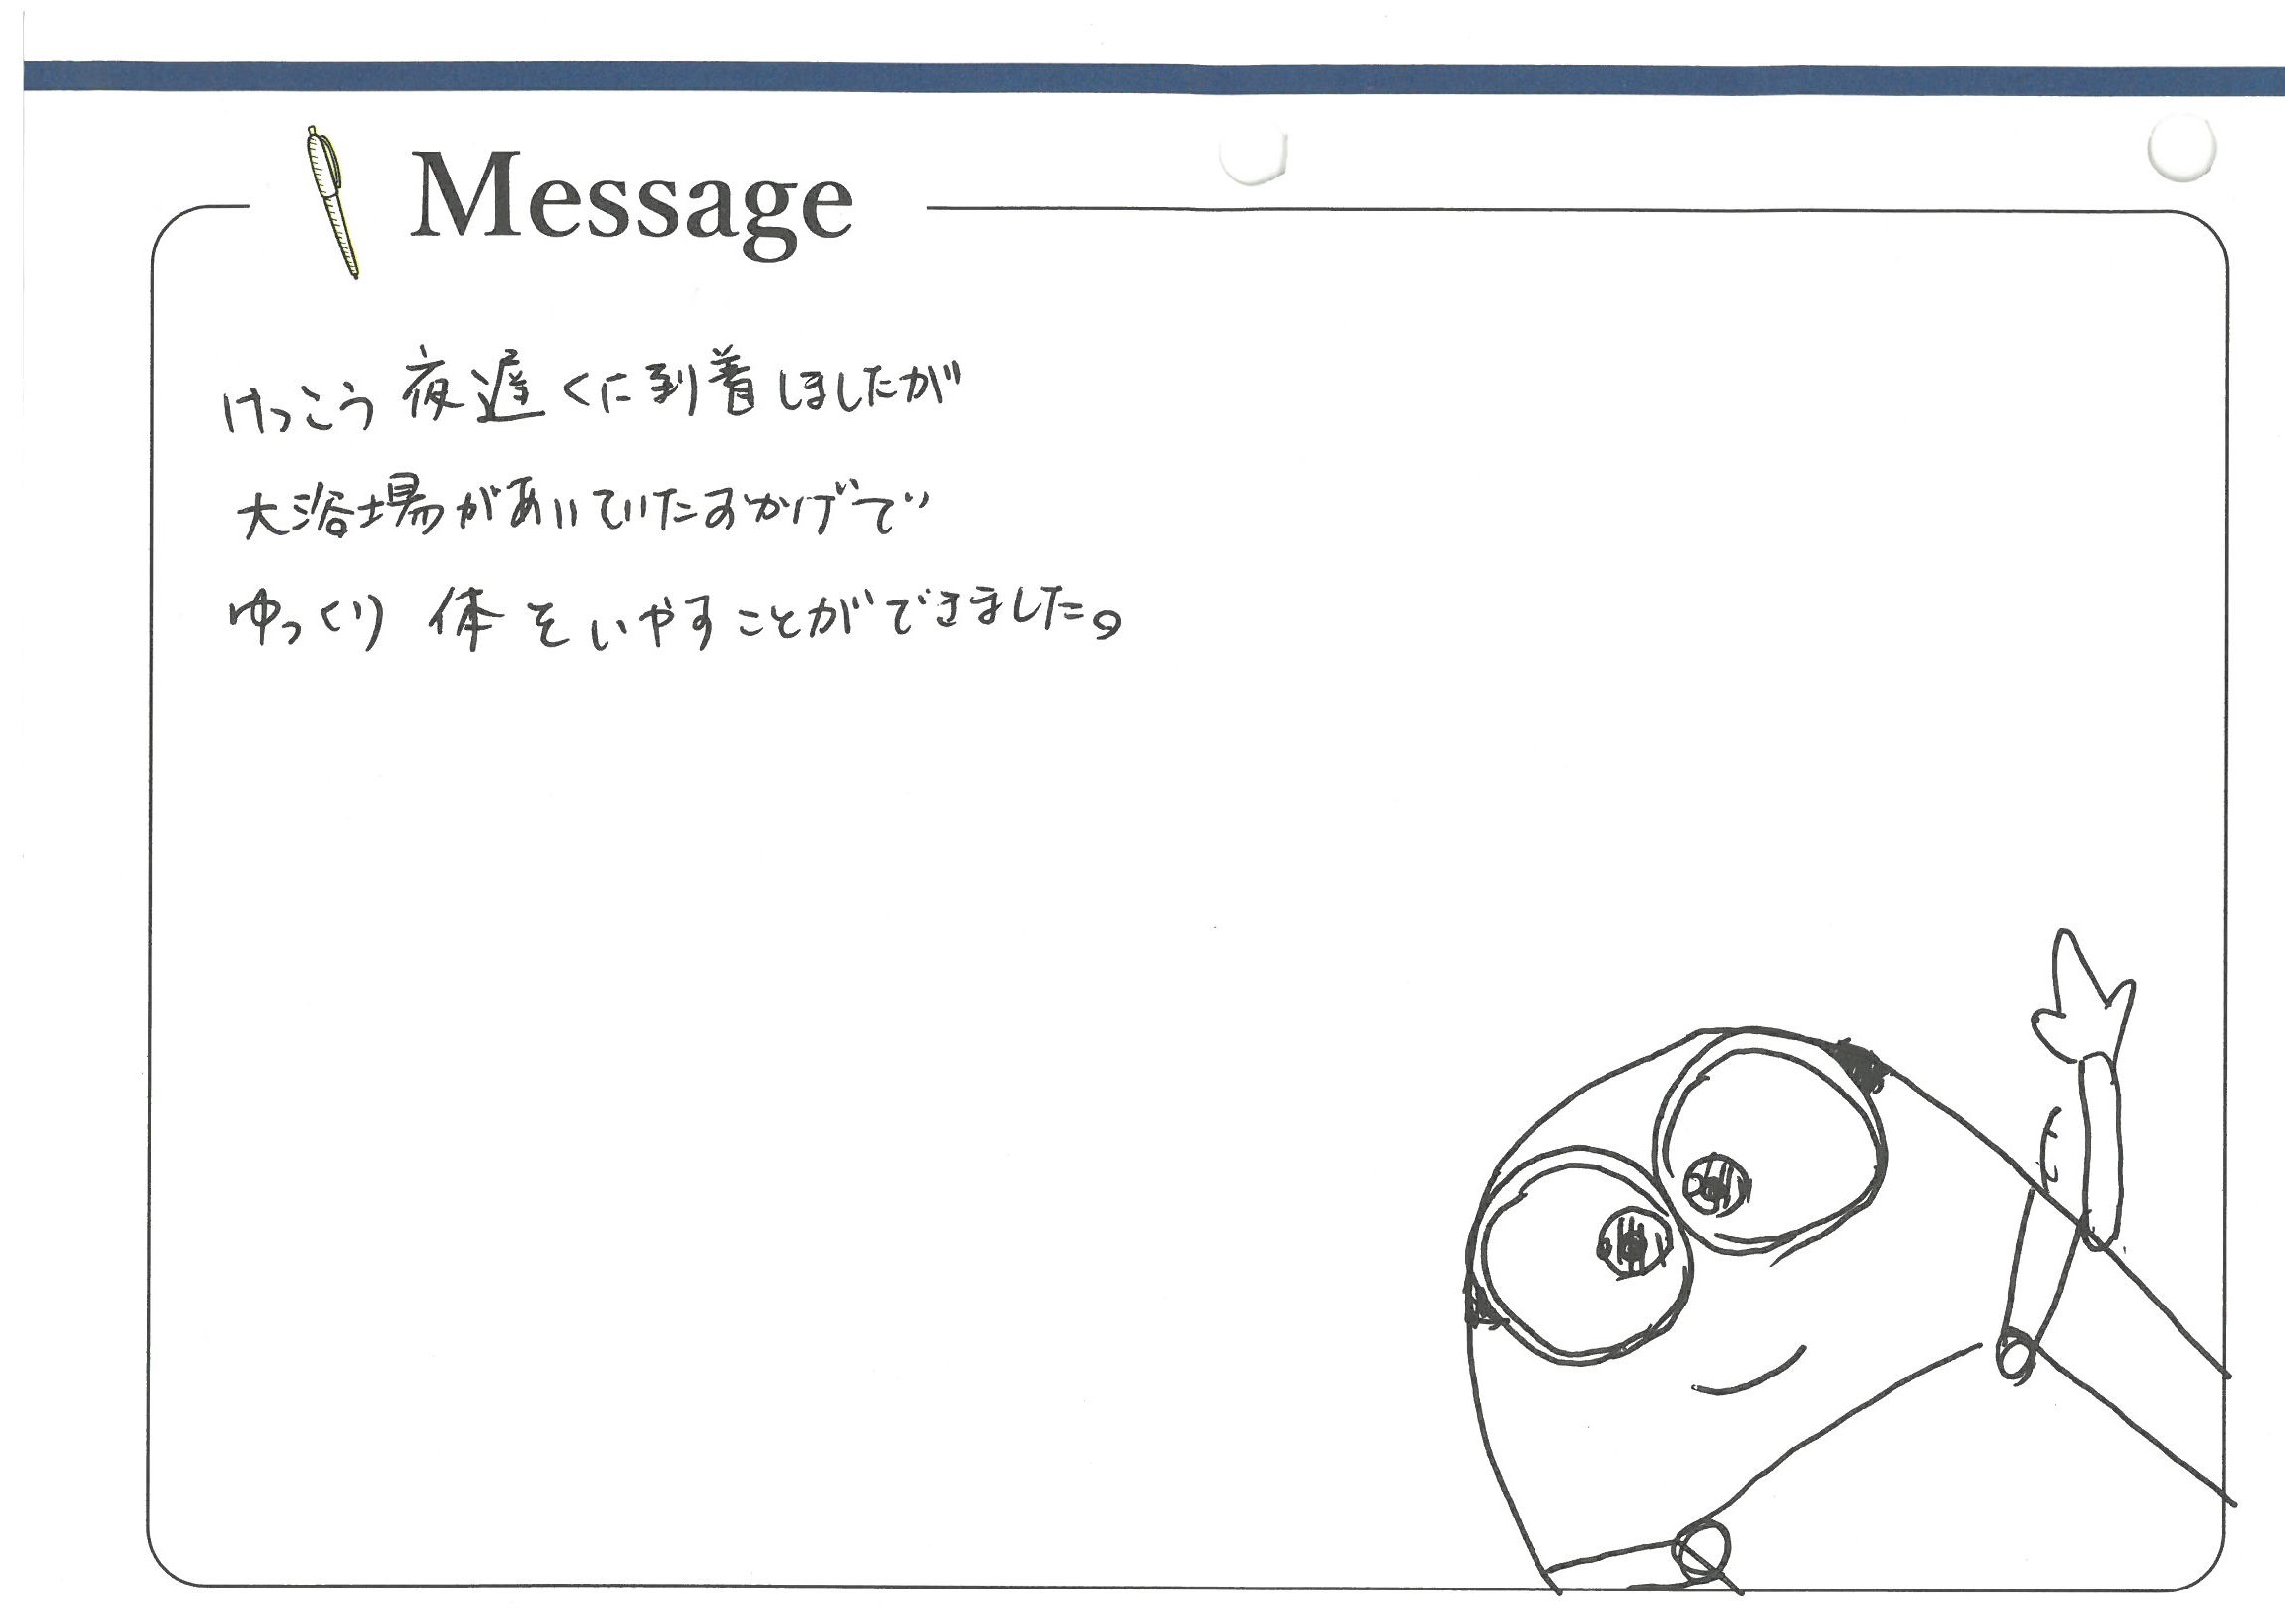 Message
けっこう夜遅くに到着しましたが
大浴場があいていたおかげで
ゆっくり 体をいやすことができました。